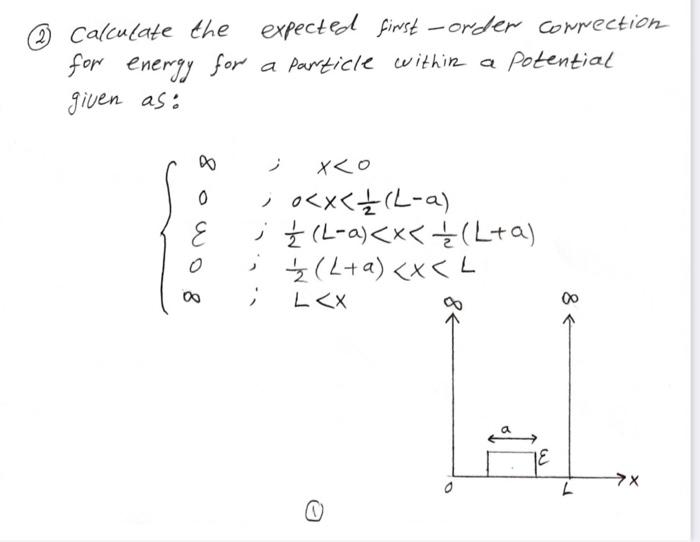 ② Calculate the expected first-order correction
for energy for a particle within a potential
given as:
∞ ; x<0
0 ; 0<x<½(L-a)
ε ; ½(L-a)<x<½(L+a)
0 ; ½(L+a)<x<L
∞ ; L<x
∞ ∞
a
ε
0 L x
①